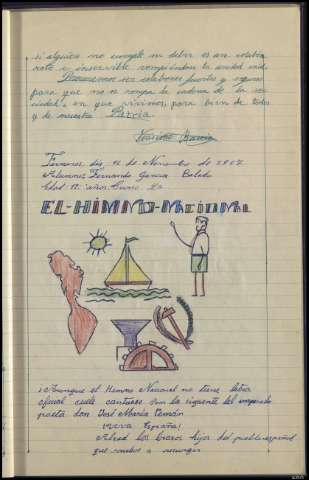 si alguien no cumple su deber es un eslabón
roto e inservible rompiéndose la unidad
Procuremos ser eslabones fuertes y seguros
para que no se rompa la cadena de la so
ciedad, en que vivimos, para bien de todos
y de nuestra Patria.
García
de Noviembre de
Alumno: Fernando García
Edad 12 años. Curso
EL-HIMNO-NACIONAL
Aunque el Himno Nacional no tiene letra
oficial suele cantarse con la siguiente del inspirado
poeta don José María Pemán
¡VIVA España!
Alzad los brazos hijos del pueblo español
que vuelve a resurgir